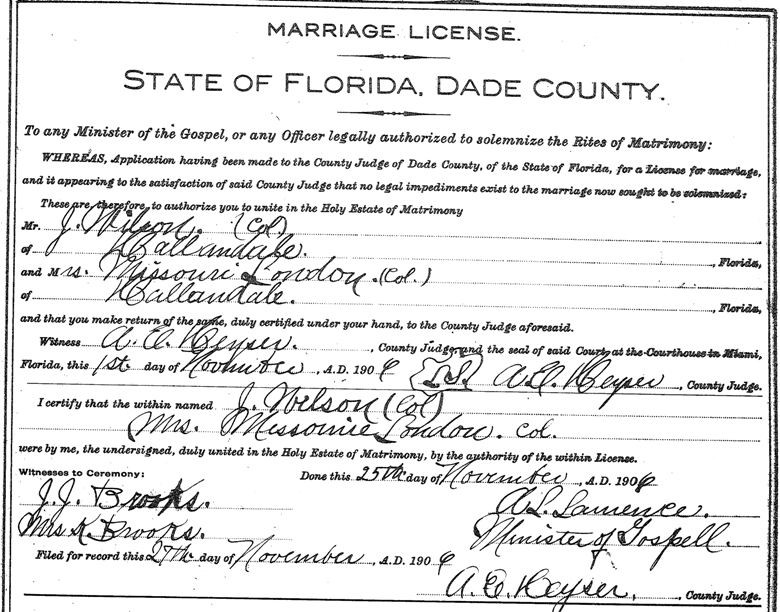 MARRIAGE LICENSE.
STATE OF FLORIDA, DADE COUNTY.
To any Minister of the Gospel, or any Officer legally authorized to solemnize the Rites of Matrimony:
WHEREAS, Application having been made to the County Judge of Dade County, of the State of Florida, for a License for marriage,
and it appearing to the satisfaction of said County Judge that no legal impediments exist to the marriage now sought to be solemnized:
These are, therefore, to authorize you to unite in the Holy Estate of Matrimony
Mr. J. Wilson. (Col)
of Hallandale. , Florida,
and Mrs. Missouri London. (Col.)
of Hallandale. , Florida,
and that you make return of the same, duly certified under your hand, to the County Judge aforesaid.
Witness A. E. Heyser. , County Judge, and the seal of said Court, at the Courthouse in Miami,
Florida, this 1st. day of November , A.D. 1906 L.S. A. E. Heyser , County Judge.
I certify that the within named J. Wilson (Col)
Mrs. Missourie London. Col.
were by me, the undersigned, duly united in the Holy Estate of Matrimony, by the authority of the within License.
Witnesses to Ceremony: Done this 25th. day of November , A.D. 1906
J. J. Brooks. A. L. Lawrence.
Mrs K. Brooks. Minister of Gospell.
Filed for record this 27th. day of November , A.D. 1906
A. E. Heyser. , County Judge.